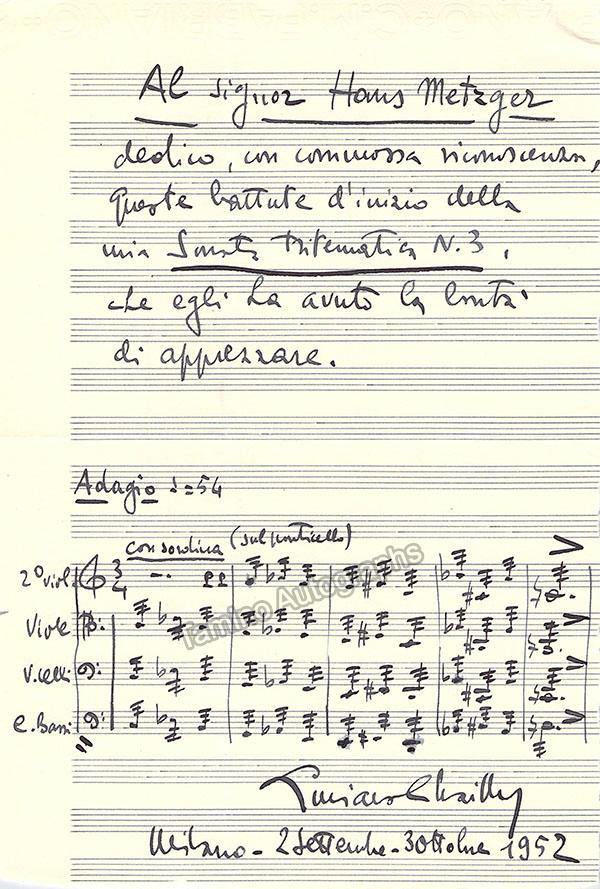 Al signor Hans Metzger
dedico, con commossa riconoscenza,
queste battute d'inizio della
mia Sonata tritematica N.3,
che egli ha avuto la bontà
di apprezzare.
Adagio ♩=54
con sordina (sul ponticello)
2º viol.
3
4
Viole
V.celli
e. Bassi
Tamino Autographs
Luciano Chailly
Milano - 2 Settembre - 3 Ottobre 1952